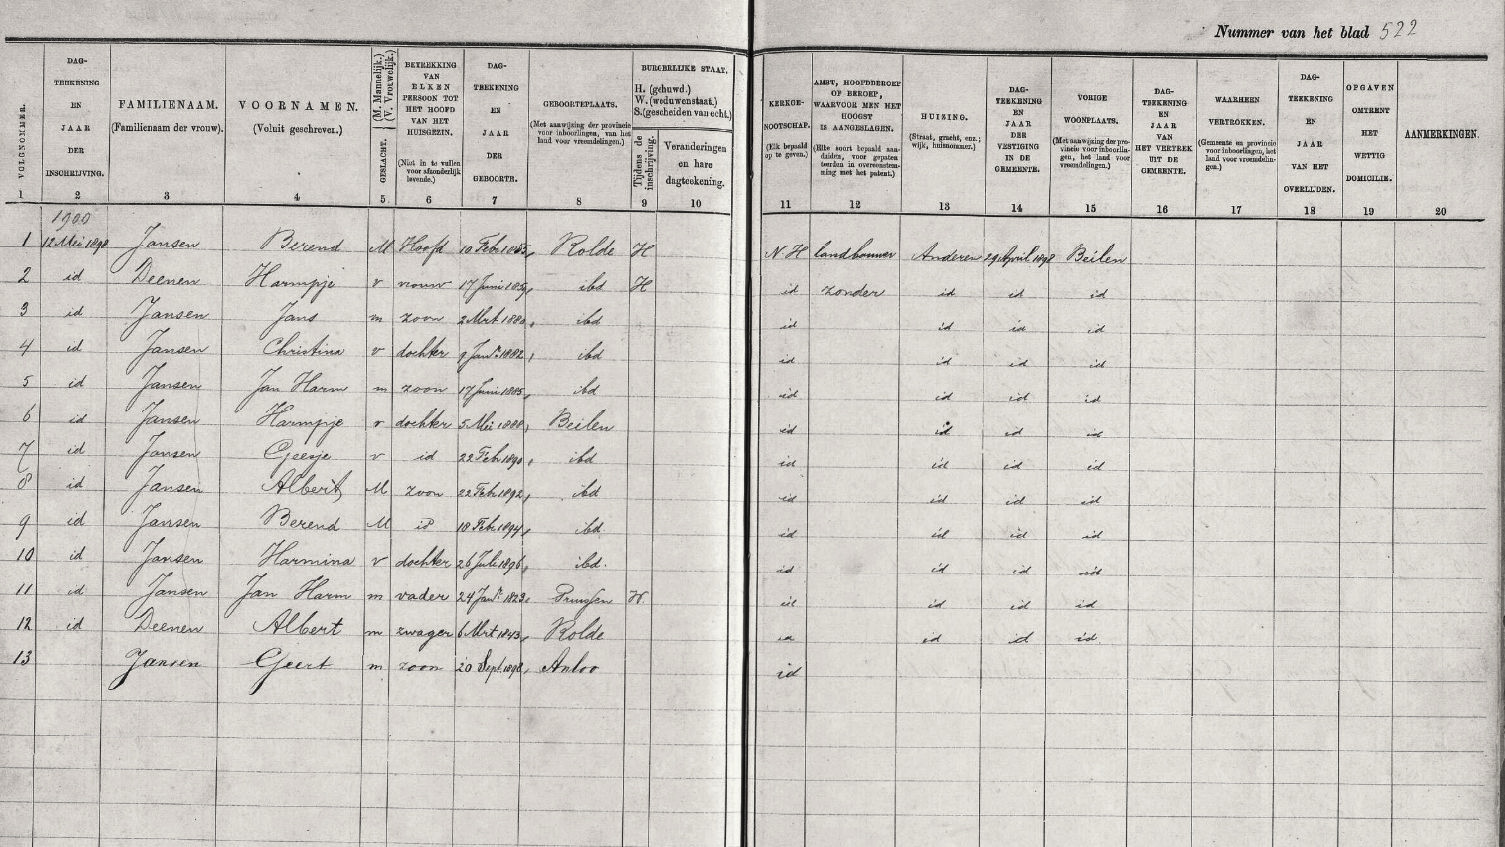 Nummer van het blad 522
VOLGNOMMER.
DAG-
TEEKENING
EN
JAAR
DER
INSCHRIJVING.
FAMILIENAAM.
(Familienaam der vrouw.)
VOORNAMEN.
(Voluit geschreven.)
GESLACHT.
(M. Mannelijk.)
(V. Vrouwelijk.)
BETREKKING
VAN
ELKEN
PERSOON TOT
HET HOOFD
VAN HET
HUISGEZIN.
(Niet in te vullen
voor afzonderlijk
levende.)
DAG-
TEEKENING
EN
JAAR
DER
GEBOORTE.
GEBOORTEPLAATS.
(Met aanwijzing der provincie
voor inboorlingen, van het
land voor vreemdelingen.)
BURGERLIJKE STAAT.
H. (gehuwd.)
W. (weduwenstaat.)
S. (gescheiden van echt.)
Tijdens de
inschrijving.
Veranderingen
en hare
dagteekening.
KERKGE-
NOOTSCHAP.
(Elk bepaald
op te geven.)
AMBT, HOOFDBEROEP
OF BEROEP,
WAARVOOR MEN HET
HOOGST
IS AANGESLAGEN.
(Elke soort bepaald aan-
duiden, voor gepaten
teerden in overeenstem-
ming met het patent.)
HUIZING.
(Straat, gracht, enz.;
wijk, huisnommer.)
DAG-
TEEKENING
EN
JAAR
DER
VESTIGING
IN DE
GEMEENTE.
VORIGE
WOONPLAATS.
(Met aanwijzing der pro-
vincie voor inboorlin-
gen, het land voor
vreemdelingen.)
DAG-
TEEKENING
EN
JAAR
VAN
HET VERTREK
UIT DE
GEMEENTE.
WAARHEEN
VERTROKKEN.
(Gemeente en provincie
voor inboorlingen, het
land voor vreemdelin-
gen.)
DAG-
TEEKENING
EN
JAAR
VAN HET
OVERLIJDEN.
OPGAVEN
OMTRENT
HET
WETTIG
DOMICILIE.
AANMERKINGEN.
1 2 3 4 5 6 7 8 9 10 11 12 13 14 15 16 17 18 19 20
1900
1 12 Mei 1898 Jansen Berend M Hoofd 10 Feb 1855 Rolde H N H landbouwer Anderen 29 April 1898 Beilen
2 id Deenen Harmpje v vrouw 17 Juni 1859 ibd H id zonder id id id
3 id Jansen Jans m zoon 2 Mrt 1880 ibd id id id id
4 id Jansen Christina v dochter 9 Janr 1882 ibd id id id id
5 id Jansen Jan Harm m zoon 17 Juni 1885 ibd id id id id
6 id Jansen Harmpje v dochter 5 Mei 1888 Beilen id id id id
7 id Jansen Geesje v id 22 Feb 1890 ibd id id id id
8 id Jansen Albert M zoon 22 Feb 1892 ibd id id id id
9 id Jansen Berend M id 18 Feb 1894 ibd id id id id
10 id Jansen Harmina v dochter 26 Juli 1896 ibd. id id id id
11 id Jansen Jan Harm m vader 24 Janr 1823 Pruissen W. id id id id
12 id Deenen Albert m zwager 6 Mrt 1843 Rolde id id id id
13 Jansen Geert m zoon 20 Sept. 1898 Anloo id